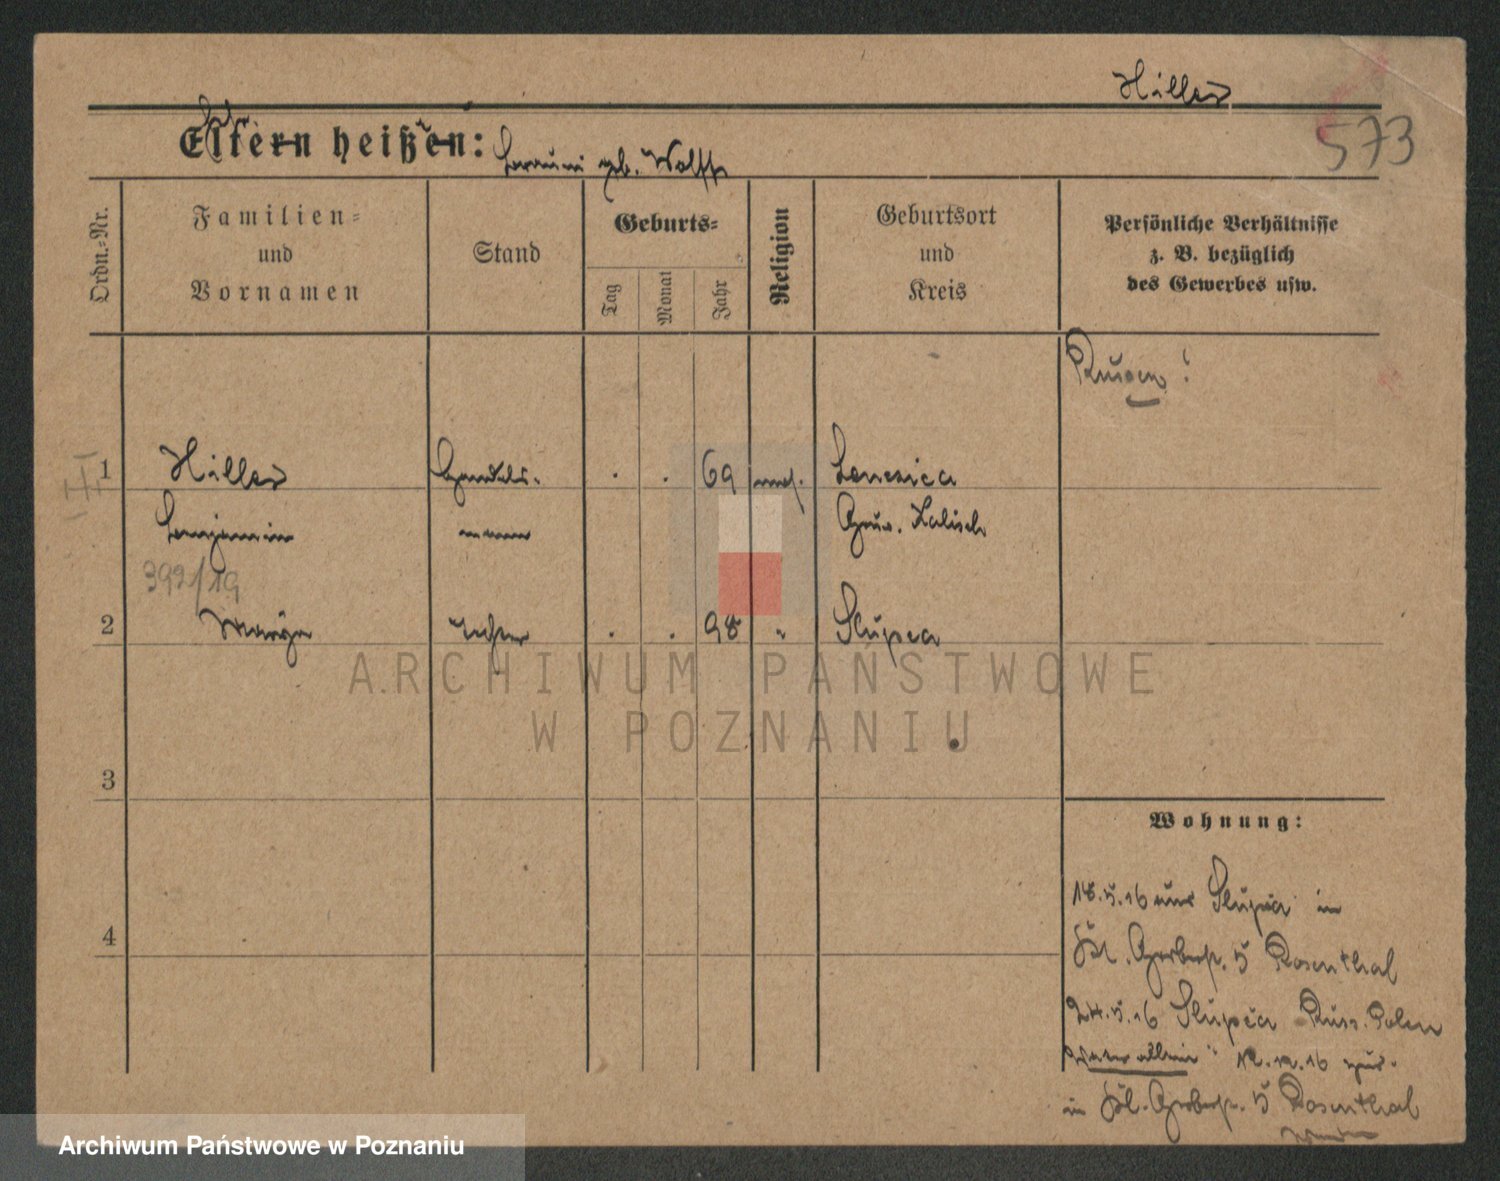 Hiller
573
Eltern heißen:
geb. Wolff
Ordn.-Nr.
Familien-
und
Vornamen
Stand
Geburts-
Tag
Monat
Jahr
Religion
Geburtsort
und
Kreis
Persönliche Verhältnisse
z. B. bezüglich
des Gewerbes usw.
Russen !
1
Hiller
Handels-
. . 69
mos.
Lenczica
Benjamin
mann
Gouv. Kalisch
392/19
2
. . 98 "
Slupca
Tochter
ARCHIWUM PAŃSTWOWE
W POZNANIU
3
Wohnung:
4
18.5.16 aus Slupca in
Kl. Gerberstr. 5 Rosenthal
24.5.16 Slupca Russ. Polen
Vater allein 12.12.16 zur.
in Kl. Gerberstr. 5 Rosenthal
Archiwum Państwowe w Poznaniu